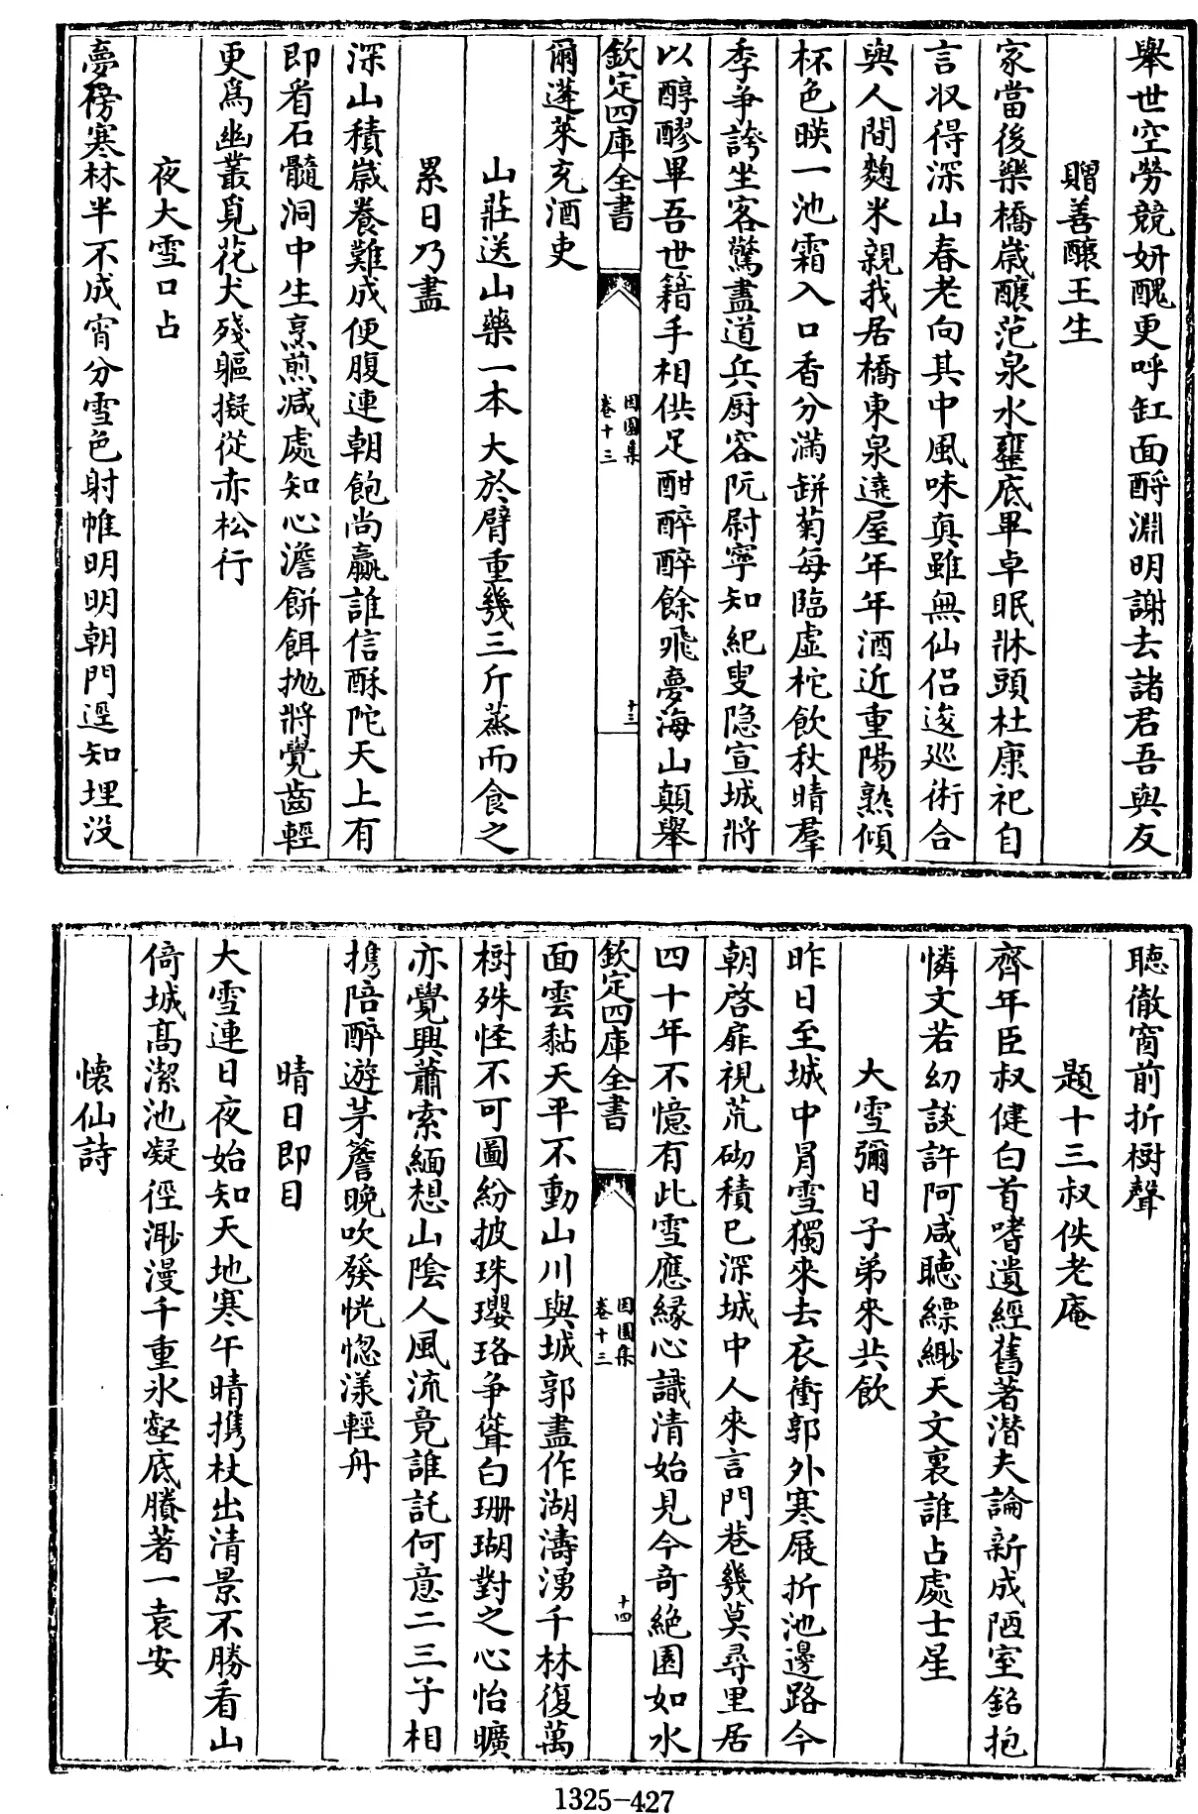 舉世空勞競妍醜更呼缸面酹淵明謝去諸君吾與友
贈善釀王生
家當後樂橋嵗釀范泉水甕底畢卓眠牀頭杜康祀自
言収得深山春老向其中風味真雖無仙侣逡巡術合
與人間麴米親我居橋東泉遶屋年年酒近重陽熟傾
杯色暎一池霜入口香分滿缾菊每臨虚柁飲秋晴羣
季争誇坐客驚盡道兵厨容阮尉寧知紀叟隐宣城將
以醇醪畢吾世籍手相供足酣醉醉餘飛夢海山顛舉
欽定四庫全書
因園集
卷十三
十三
爾蓬萊充酒吏
山莊送山藥一本大於臂重幾三斤蒸而食之
累日乃盡
深山積嵗養難成便腹連朝飽尚贏誰信酥陀天上有
即看石髓洞中生烹煎减處知心澹餅餌抛將覺齒輕
更爲幽叢覓花犬殘軀擬從赤松行
夜大雪口占
夢傍寒林半不成宵分雪色射帷明明朝門逕知埋没
聴徹窗前折樹聲
題十三叔佚老庵
齊年臣叔健白首嗜遺經舊著潜夫論新成陋室銘抱
憐文若幻談許阿咸聴縹緲天文裏誰占處士星
大雪彌日子弟來共飲
昨日至城中冐雪獨來去衣衝郭外寒屐折池邊路今
朝啓扉視荒砌積已深城中人來言門巷幾莫尋里居
四十年不憶有此雪應縁心識清始見今奇絶園如水
欽定四庫全書
因園集
卷十三
十四
面雲黏天平不動山川與城郭盡作湖濤湧千林復萬
樹殊怪不可圖紛披珠瓔珞争聳白珊瑚對之心怡曠
亦覺興蕭索緬想山隂人風流竟誰託何意二三子相
携陪醉遊茅簷晩吹發恍惚漾輕舟
晴日即目
大雪連日夜始知天地寒午晴携杖出清景不勝看山
倚城髙潔池凝徑渺漫千重氷壑底賸著一袁安
懐仙詩
1325-427